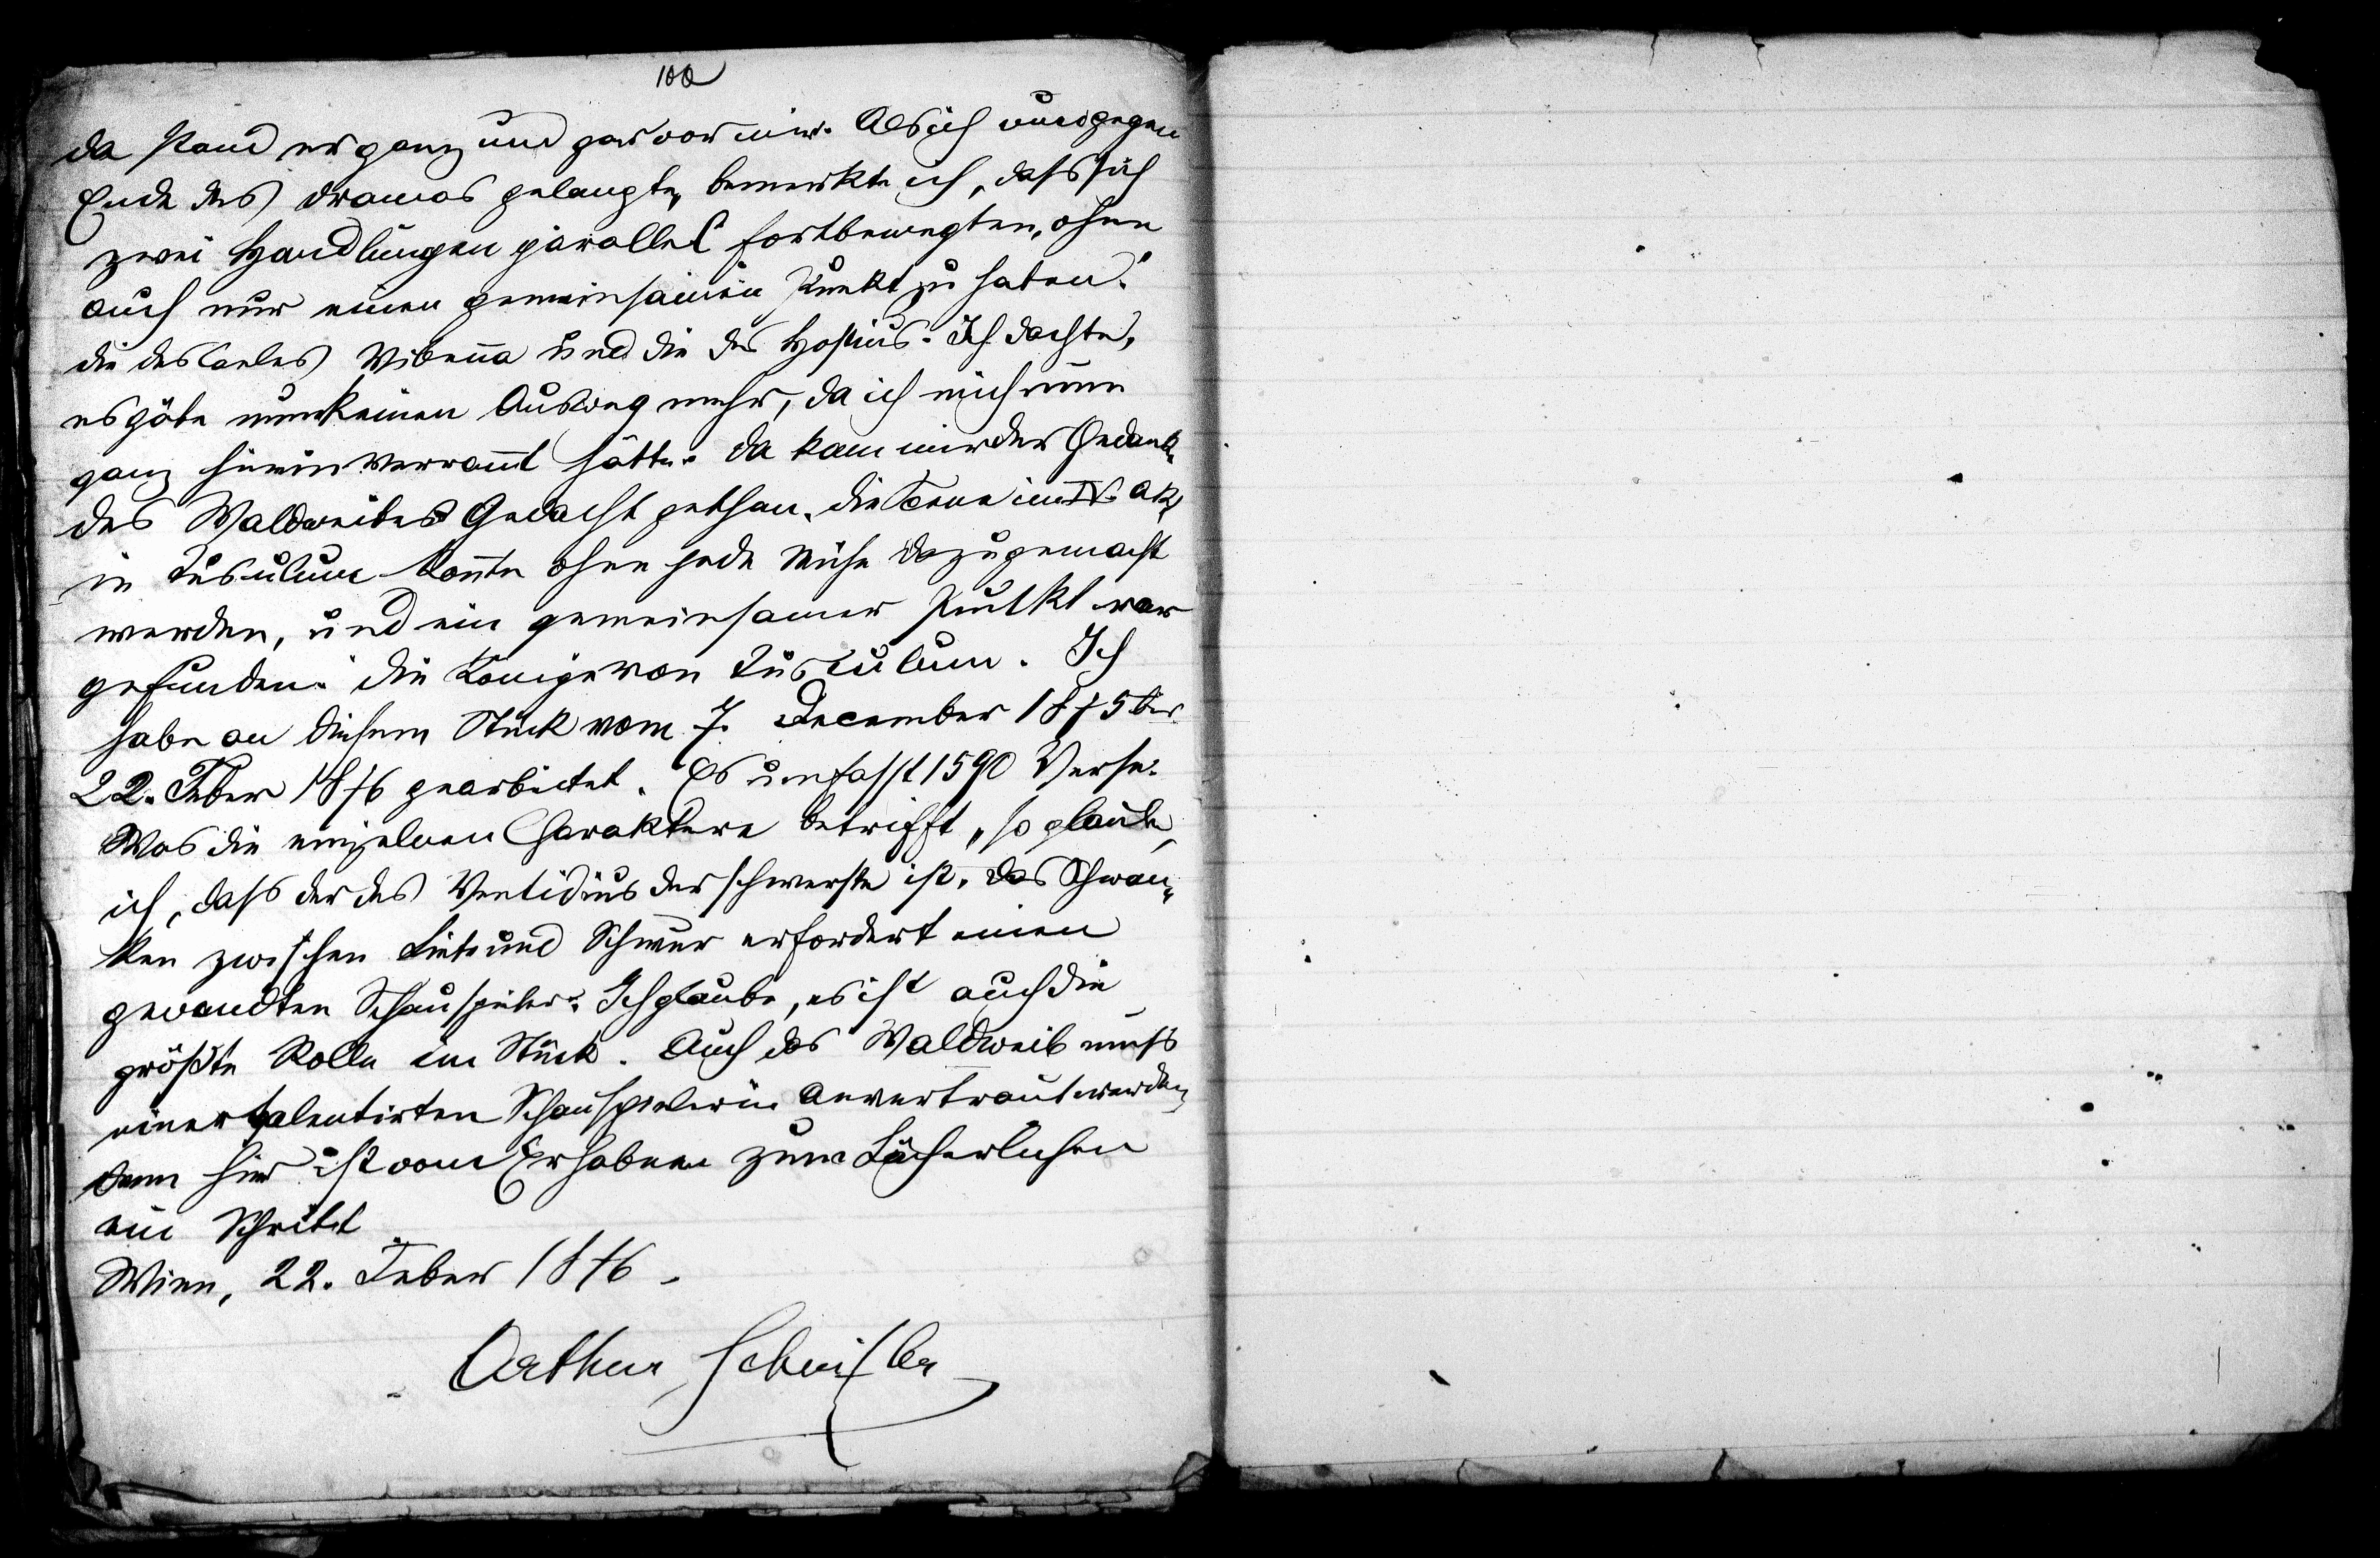 100
da stand er ganz und gar vor mir. Als ich nun gegen
Ende des Dramas gelangte, bemerkte ich, dass sich
zwei Handlungen parallel fortbewegten, ohne
auch nur einen gemeinsamen Punkt zu haben:
die des Caeles Vibenna und die des Hostius. Ich dachte,
es gäbe nun keinen Ausweg mehr, da ich mich nun
ganz hinein verrannt hätte. Da kam mir der Gedank
des Waldweibes Gedacht gethan. die Scene im IV. Akt
in Tusculum konnte ohne jede Mühe dazugemacht
werden, und ein gemeinsamer Punkt war
gefunden: die Könige von Tusculum. Ich
habe an diesem Stück vom 7. December 1875 bis
22. Feber 1876 gearbeitet. Es umfasst 1590 Verse.
Was die einzelnen Charaktere betrifft, so glaube
ich, dass der des Ventidius der schwerste ist. Das Schwan„
ken zwischen Liebe und Schwur erfordert einen
gewandten Schauspieler. Ich glaube, es ist auch die
größte Rolle im Stück. Auch das Waldweib muss
einer talentirten Schauspielerin anvertraut werden,
denn hier ist vom Erhabenen zum Lächerlichen
ein Schritt
Wien, 22. Feber 1876.
Arthur Schnitzler